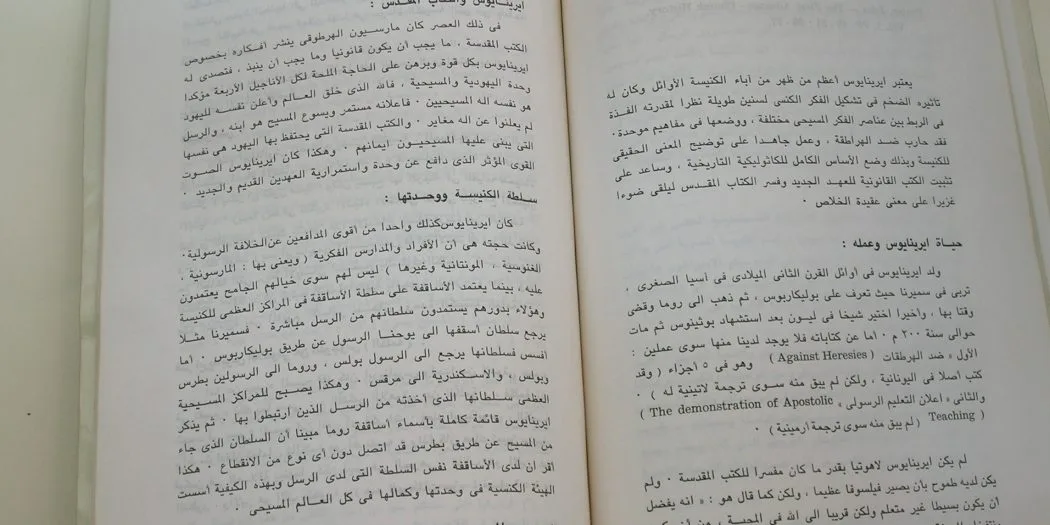 يعتبر ايرينايوس أعظم من ظهر من آباء الكنيسة الأوائل وكان له
تاثيره الضخم فى تشكيل الفكر الكنسى لسنين طويلة نظرا لمقدرته الفذة
فى الربط بين عناصر الفكر المسيحى مختلفة ، ووضعها فى مفاهيم موحدة٠
فقد حارب ضد الهراطقة ، وعمل جاهدا على توضيح المعنى الحقيقى
للكنيسة وبذلك وضع الأساس الكامل للكاثوليكية التاريخية ، وساعد على
تثبيت الكتب القانونية للعهد الجديد وفسر الكتاب المقدس ليلقى ضوءا
غزيرا على معنى عقيدة الخلاص ٠
حياة ايرينايوس وعمله :
ولد ايرينايوس فى أوائل القرن الثانى الميلادى فى آسيا الصغرى ،
تربى فى سميرنا حيث تعرف على بوليكاربوس ، ثم ذهب الى روما وقضى
وقتا بها ، واخيرا اختير شيخا فى ليون بعد استشهاد بوثينوس ثم مات
حوالى سنة ٢٠٠ م ٠ اما عن كتاباته فلا يوجد لدينا منها سوى عملين :
الأول « ضد الهرطقات ( Against Heresies ) وهو فى ٥ أجزاء ( وقد
كتب أصلا فى اليونانية ، ولكن لم يبق منه سوى ترجمة لاتينية له ) ٠
والثانى « اعلان التعليم الرسولى » ( The demonstration of Apostolic
Teaching ) ( لم يبق منه سوى ترجمة أرمينية ) ٠
لم يكن ايرينايوس لاهوتيا بقدر ما كان مفسرا للكتب المقدسة ٠ ولم
يكن لديه طموح بأن يصير فيلسوفا عظيما ، ولكن كما قال هو : « انه يفضل
أن يكون بسيطا غير متعلم ولكن قريبا الى الله فى المحبة ، من أن يكون
ايرينايوس والكتاب المقدس :
فى ذلك العصر كان مارسيون الهرطوقى ينشر أفكاره بخصوص
الكتب المقدسة ، ما يجب ان يكون قانونيا وما يجب أن ينبذ ، فتصدى له
ايرينايوس بكل قوة وبرهن على الحاجة الملحة لكل الأناجيل الأربعة مؤكدا
وحدة اليهودية والمسيحية ، فالله الذى خلق العالم وأعلن نفسه لليهود
هو نفسه اله المسيحيين ٠ فاعلانه مستمر ويسوع المسيح هو ابنه ، والرسل
لم يعلنوا عن اله مغاير ٠ والكتب المقدسة التى يحتفظ بها اليهود هى نفسها
التى يبنى عليها المسيحيون ايمانهم ٠ وهكذا كان ايرينايوس الصوت
القوى المؤثر الذى دافع عن وحدة واستمرارية العهدين القديم والجديد ٠
سلطة الكنيسة ووحدتها :
كان ايرينايوس كذلك واحدا من أقوى المدافعين عن الخلافة الرسولية٠
وكانت حجته هى أن الأفراد والمدارس الفكرية ( ويعنى بها : المارسونية ،
الغنوسية ، المونتانية وغيرها ) ليس لهم سوى خيالهم الجامح يعتمدون
عليه ، بينما يعتمد الأساقفة على سلطة الأساقفة فى المراكز العظمى للكنيسة
وهؤلاء بدورهم يستمدون سلطانهم من الرسل مباشرة ٠ فسميرنا مثلا
يرجع سلطان أسقفها الى يوحنا الرسول عن طريق بوليكاربوس ٠ أما
أفسس فسلطانها يرجع الى الرسول بولس ، وروما الى الرسولين بطرس
وبولس ، والاسكندرية الى مرقس ٠ وهكذا يصبح للمراكز المسيحية
العظمى سلطانها الذى أخذته من الرسل الذين ارتبطوا بها ٠ ثم يذكر
ايرينايوس قائمة كاملة بأسماء أساقفة روما مبينا أن السلطان الذى جاء
من المسيح عن طريق بطرس قد اتصل دون أى نوع من الانقطاع ٠ هكذا
اقر ان لدى الأساقفة نفس السلطة التى لدى الرسل وبهذه الكيفية أسست
الهيئة الكنسية فى وحدتها وكمالها فى كل العالم المسيحى ٠